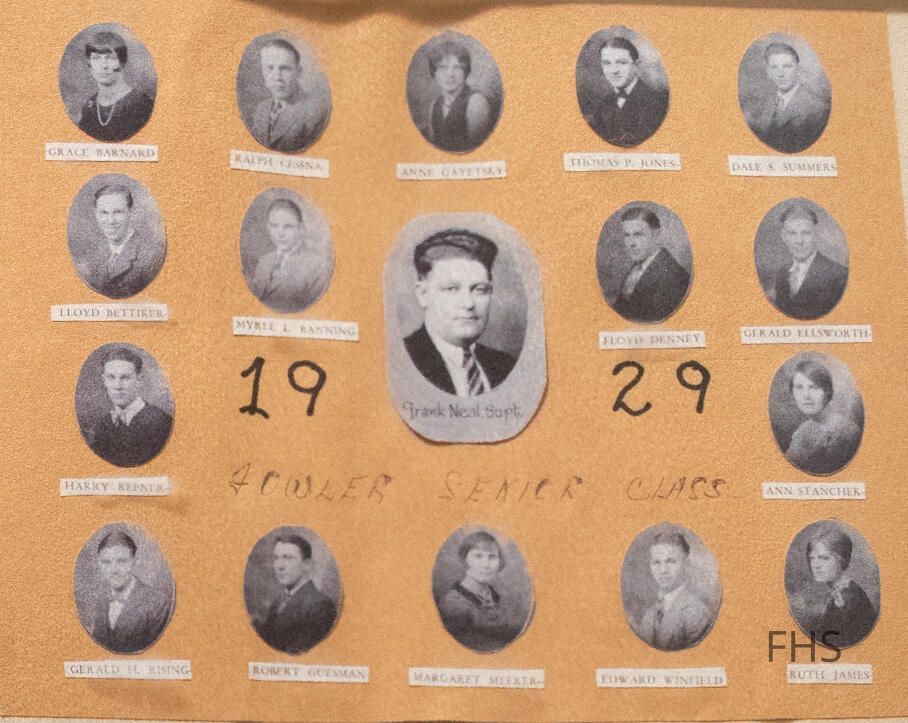 GRACE BARNARD
RALPH CESSNA
ANNE GAYETSKY
THOMAS P. JONES
DALE S. SUMMERS
LLOYD BETTIKER
MYRLE L. BANNING
FLOYD DENNEY
GERALD ELLSWORTH
Frank Neal Supt.
19 29
HARRY KEPNER
ANN STANCHEK
FOWLER SENIOR CLASS
GERALD H. RISING
ROBERT GUESMAN
MARGARET MEEKER
EDWARD WINFIELD
RUTH JAMES
FHS